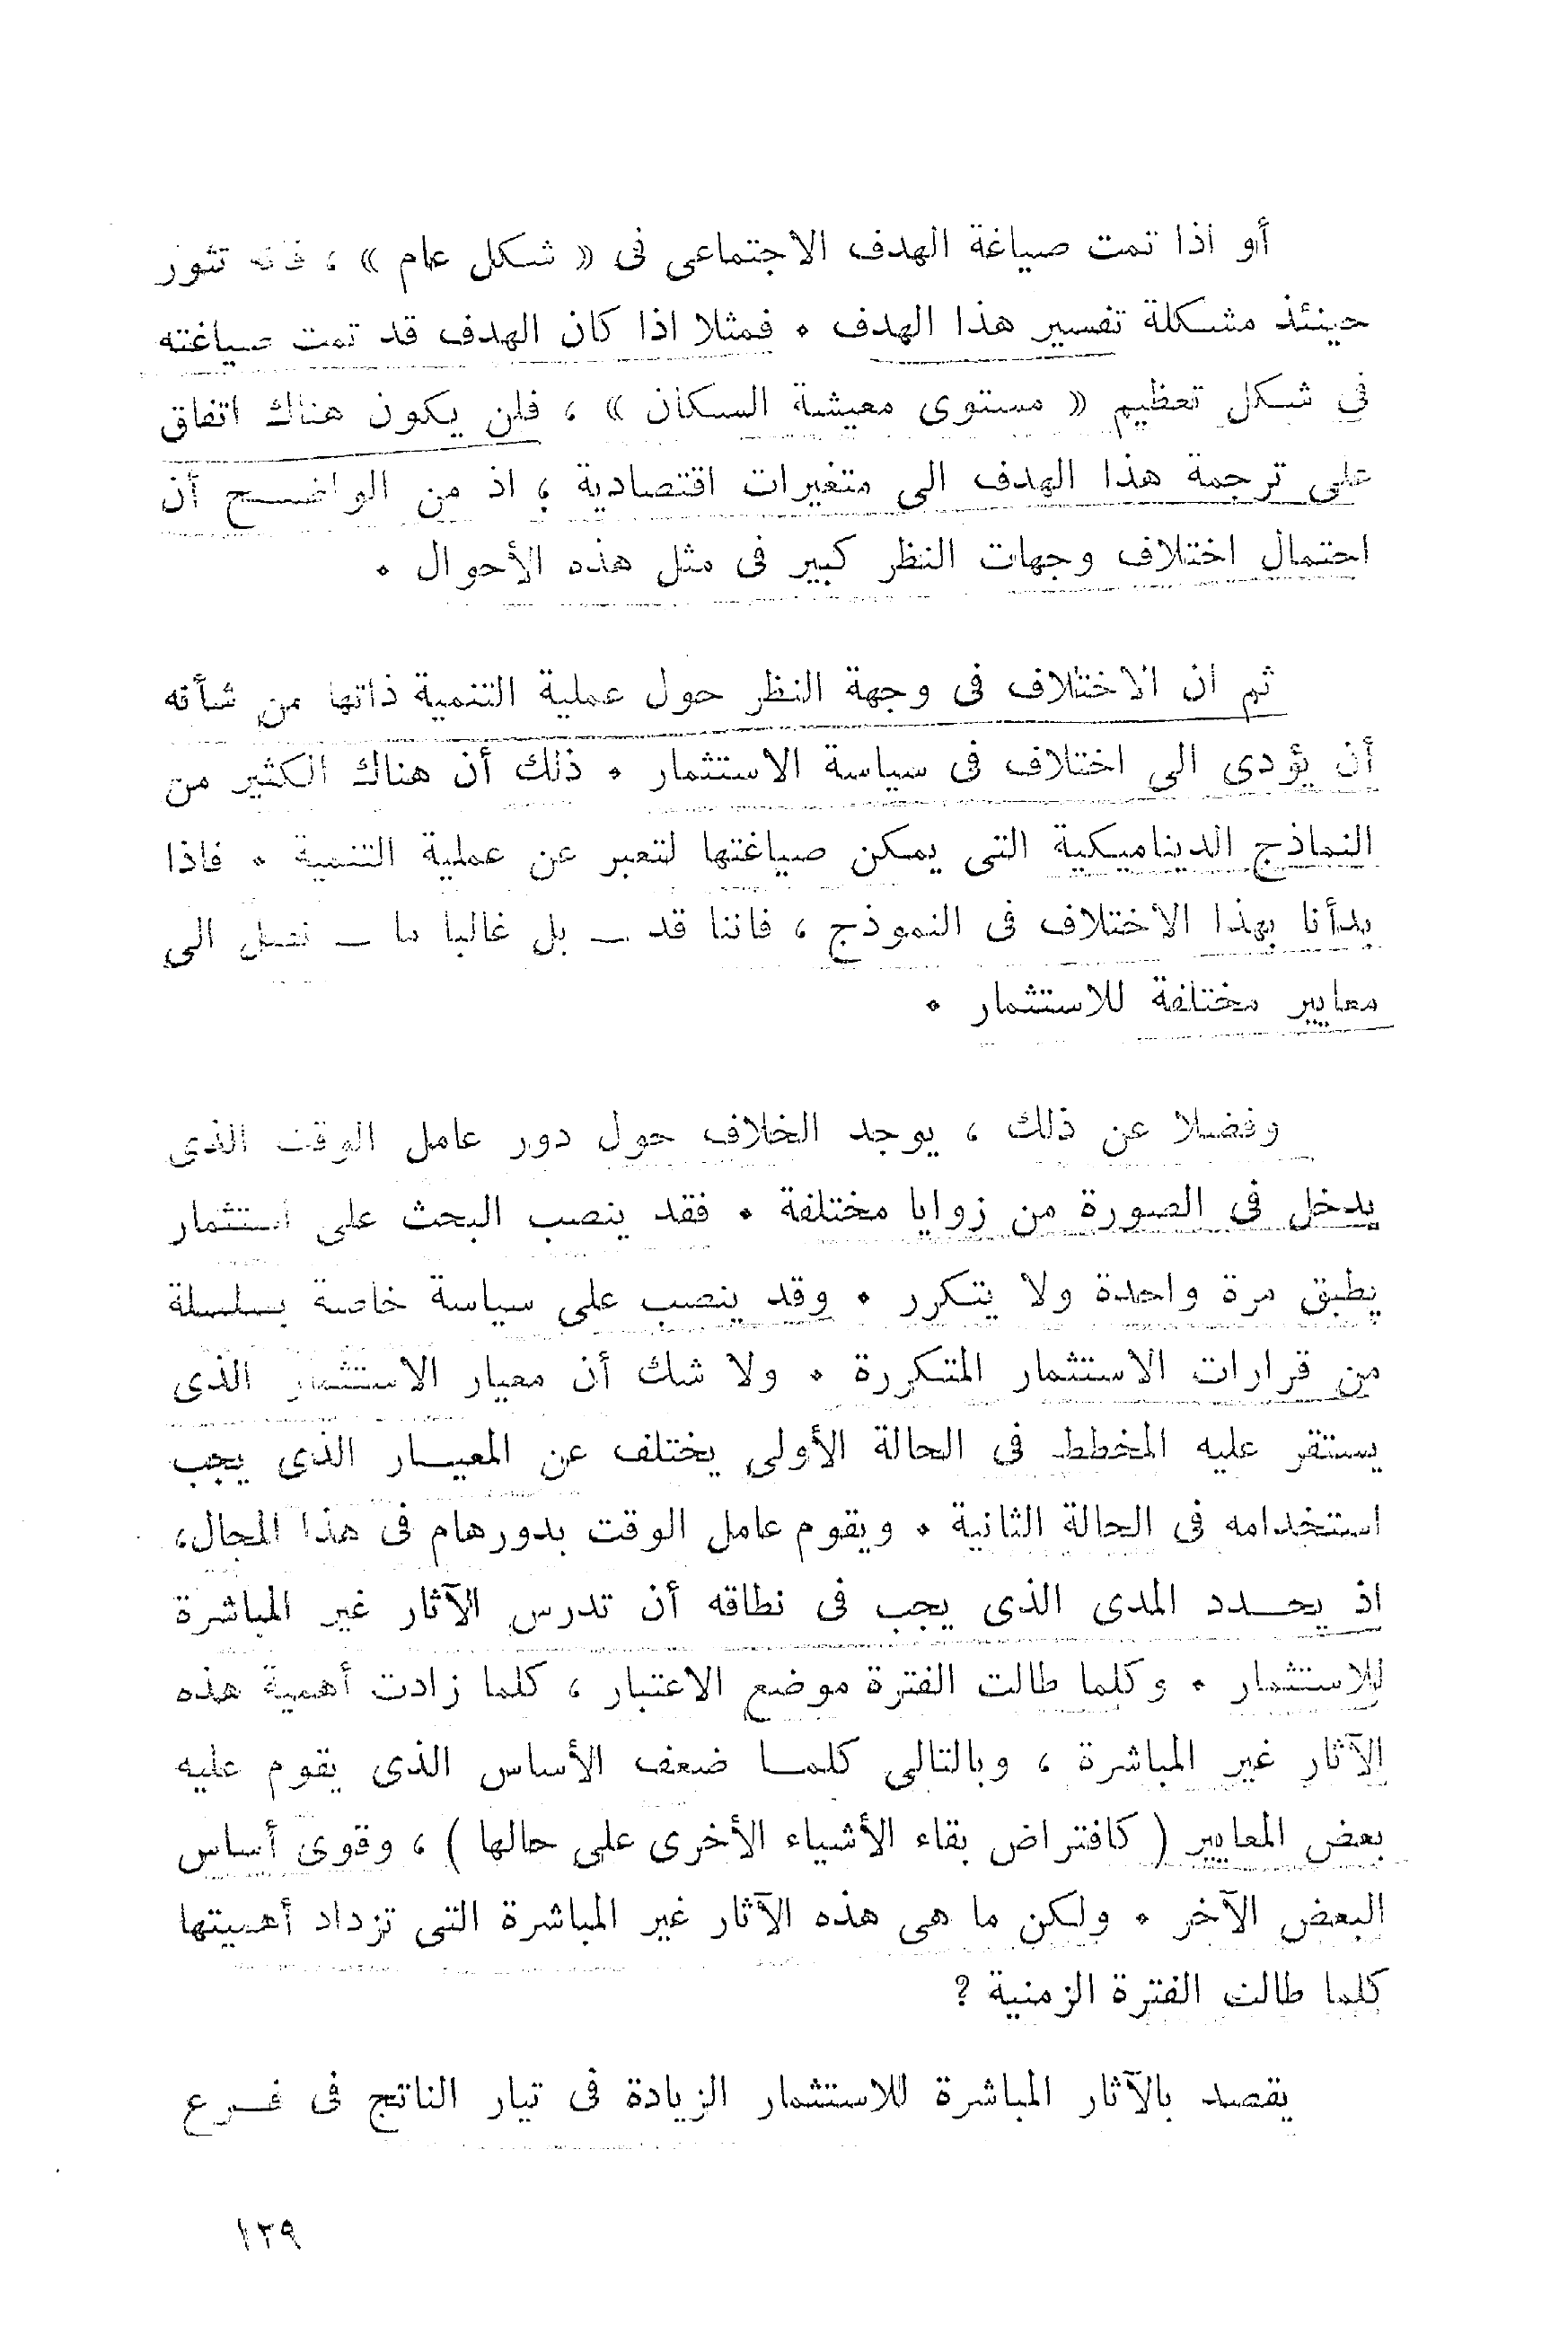 أو اذا تمت صياغة الهدف الاجتماعى فى « شكل عام » ، فانه تثور
حينئذ مشكلة تفسير هذا الهدف ٠ فمثلا اذا كان الهدف قد تمت صياغته
فى شكل تعظيم « مستوى معيشة السكان » ، فلن يكون هناك اتفاق
على ترجمة هذا الهدف الى متغيرات اقتصادية ، اذ من الواضح أن
احتمال اختلاف وجهات النظر كبير فى مثل هذه الأحوال ٠
ثم ان الاختلاف فى وجهة النظر حول عملية التنمية ذاتها من شأنه
أن يؤدى الى اختلاف فى سياسة الاستثمار ٠ ذلك أن هناك الكثير من
النماذج الديناميكية التى يمكن صياغتها لتعبر عن عملية التنمية ٠ فاذا
بدأنا بهذا الاختلاف فى النموذج ، فاننا قد — بل غالبا ما — نصل الى
معايير مختلفة للاستثمار ٠
وفضلا عن ذلك ، يوجد الخلاف حول دور عامل الوقت الذى
يدخل فى الصورة من زوايا مختلفة ٠ فقد ينصب البحث على استثمار
يطبق مرة واحدة ولا يتكرر ٠ وقد ينصب على سياسة خاصة بسلسلة
من قرارات الاستثمار المتكررة ٠ ولا شك أن معيار الاستثمار الذى
يستقر عليه المخطط فى الحالة الأولى يختلف عن المعيار الذى يجب
استخدامه فى الحالة الثانية ٠ ويقوم عامل الوقت بدورهام فى هذا المجال،
اذ يحدد المدى الذى يجب فى نطاقه أن تدرس الآثار غير المباشرة
للاستثمار ٠ وكلما طالت الفترة موضع الاعتبار ، كلما زادت أهمية هذه
الآثار غير المباشرة ، وبالتالى كلما ضعف الأساس الذى يقوم عليه
بعض المعايير ( كافتراض بقاء الأشياء الأخرى على حالها ) ، وقوى أساس
البعض الآخر ٠ ولكن ما هى هذه الآثار غير المباشرة التى تزداد أهميتها
كلما طالت الفترة الزمنية ؟
يقصد بالآثار المباشرة للاستثمار الزيادة فى تيار الناتج فى فرع
١٢٩